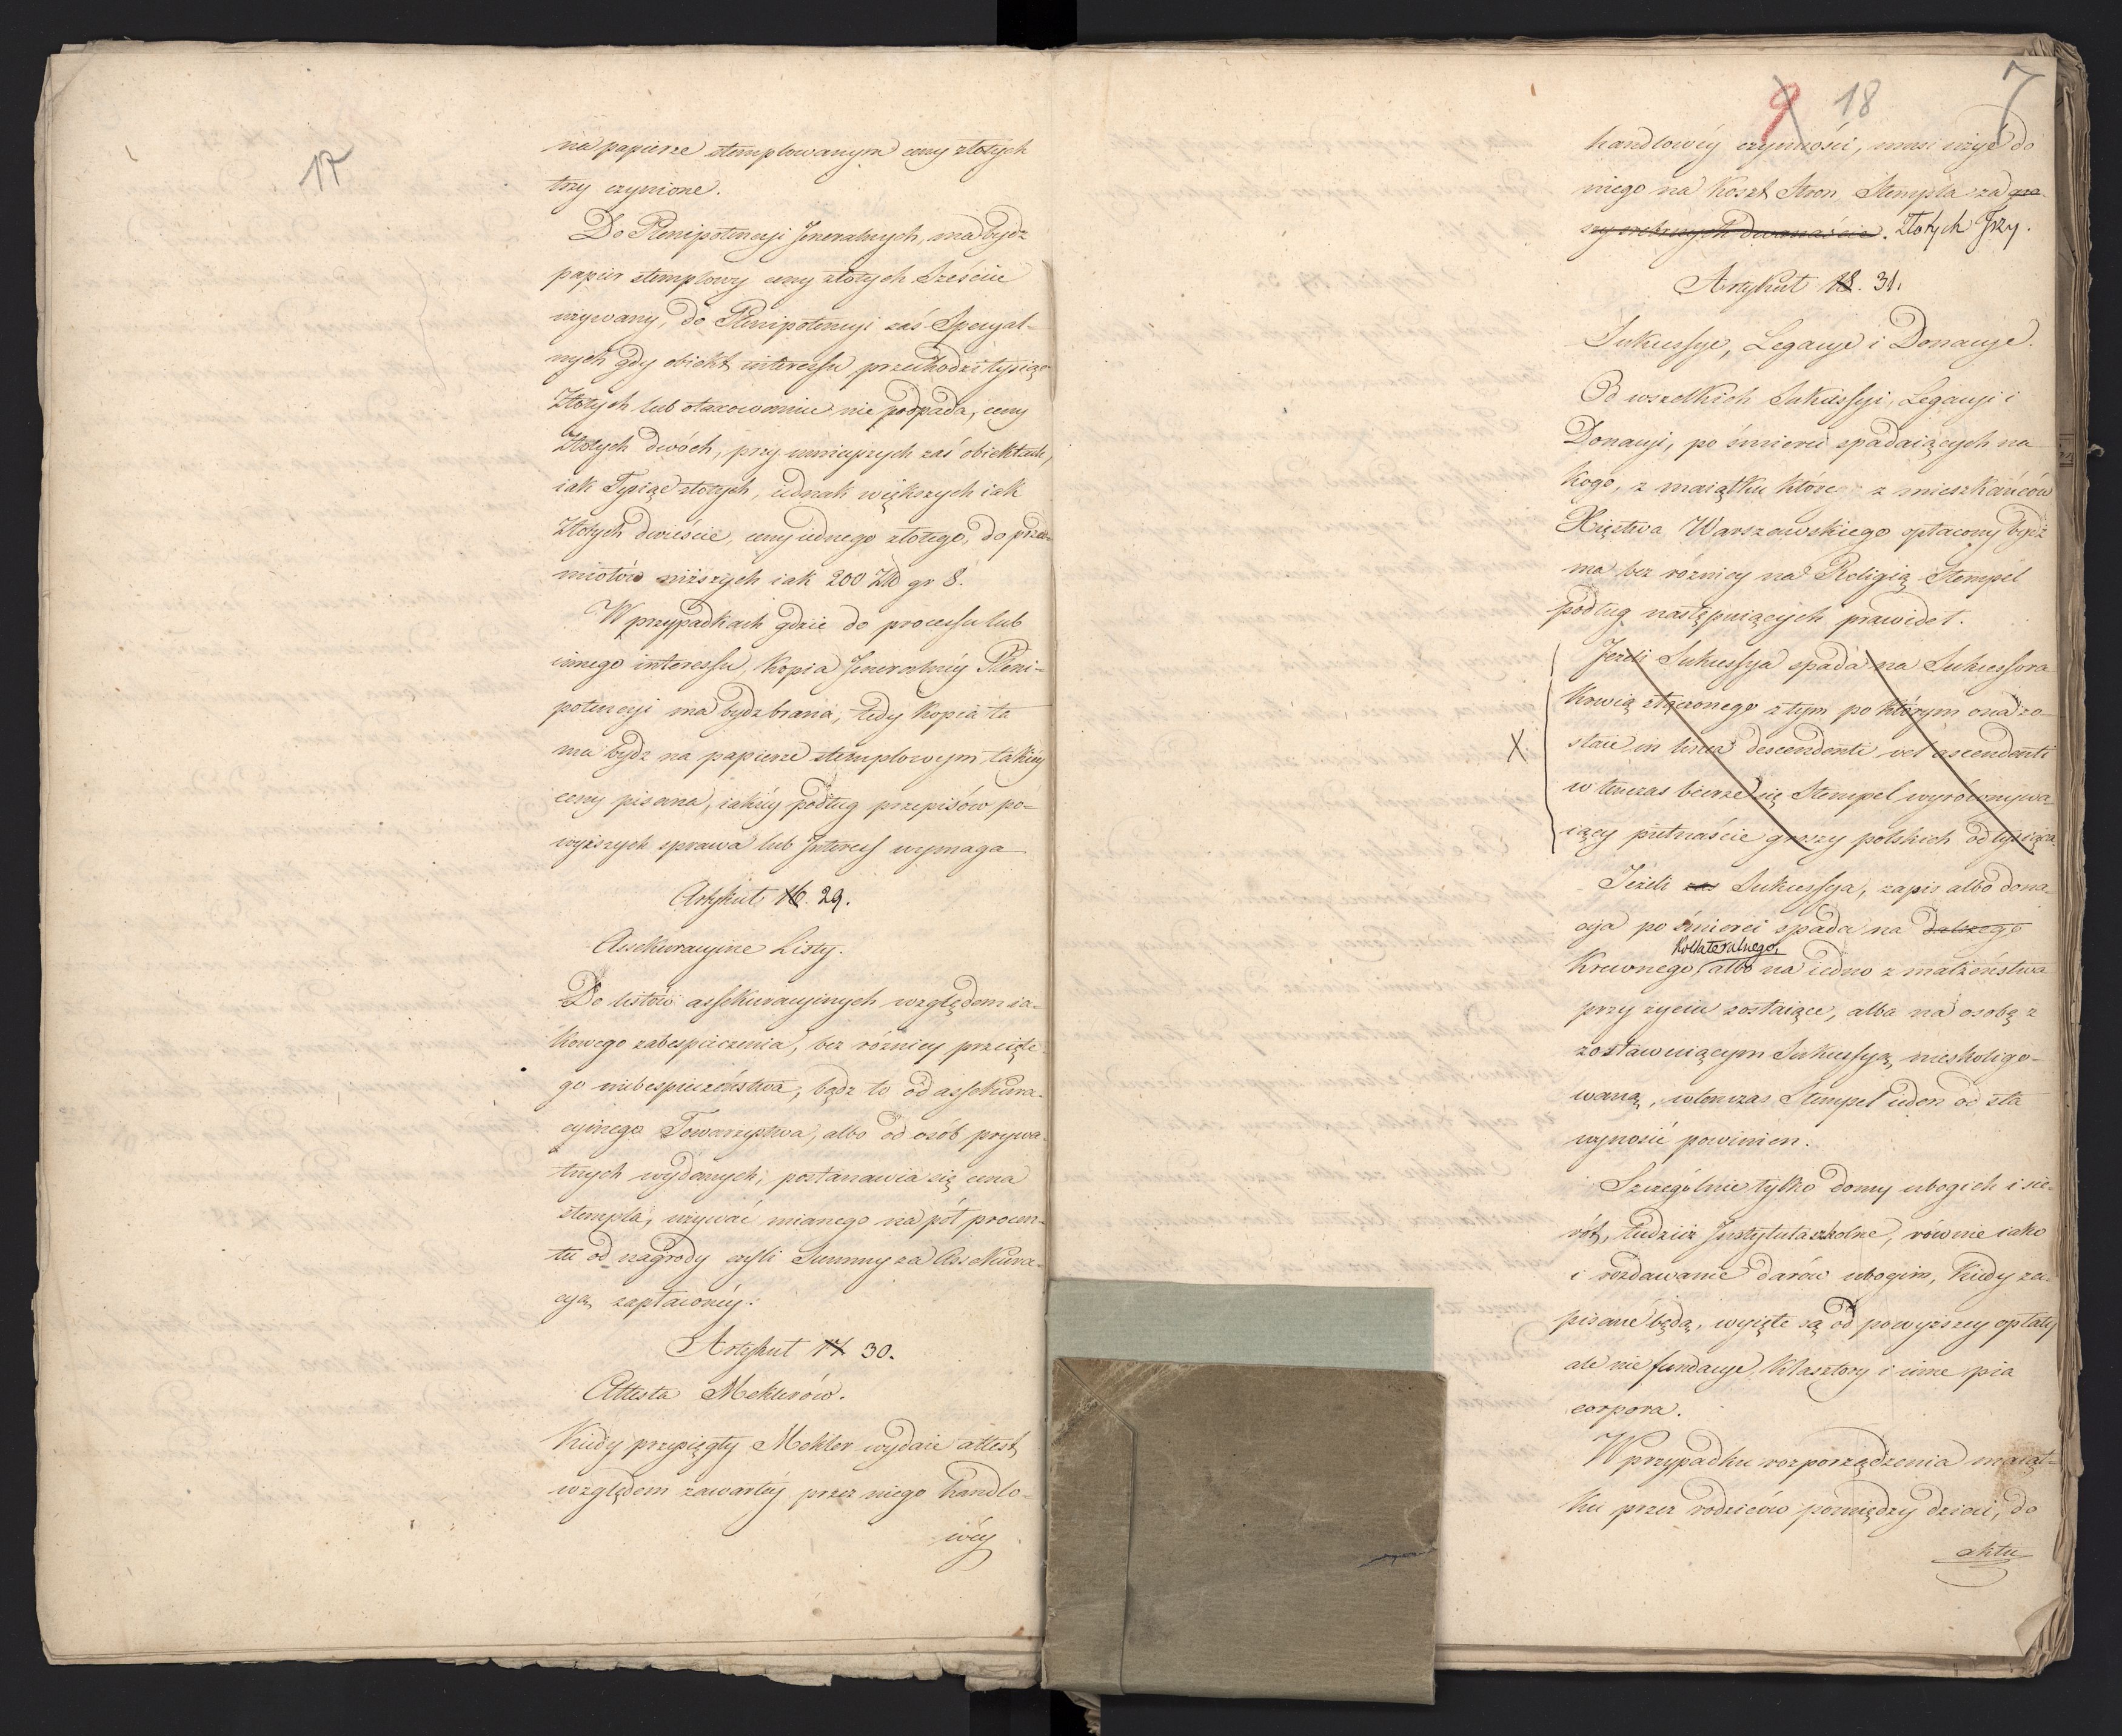 17
na papierze stemplowanym ceny złotych
trzy czynione.
Do Plenipotencyi Jeneralnych, ma bydz
papier stemplowy ceny złotych Sześciu
używany, do Plenipotencyi zaś Specyal-
nych gdy obiekt interessu przechodzi tysiąc
Złotych lub otaxowaniu nie podpada, ceny
Złotych dwóch, przy mnieyszych zaś obiektach,
iak Tysiąc złotych, iednak większych iak
Złotych dwieście, ceny iednego złotego, do przed-
miotów niższych iak 200 Zł gr 8.
W przypadkach gdzie do processu lub
innego interessu, kopia Jeneralnéy Pleni-
potencyi ma bydz brana, tedy kopia ta
ma bydz na papierze stemplowym takiéy
ceny pisana, iakiéy podług przepisów po-
wyższych sprawa lub Interess wymaga
Artykuł 16. 29.
Assekuracyine Listy.
Do listów assekuracyinych względem ia-
kowego zabespieczenia, bez różnicy przeciw-
go niebespieczeństwa, bądz to od assekura-
cyinego Towarzystwa, albo od osób prywa-
tnych wydanych, postanawia się cena
stempla, używać mianego na pół procen-
tu od nagrody czyli Summy za Assekura-
cyą zapłaconéy.
Artykuł 17 30.
Attesta Meklerów.
Kiedy przysięgły Mekler wydaie attest
względem zawartéy przez niego handlo-
wéy
9 18 7
handlowéy czynności, musi użyć do
niego na koszt Stron, Stempla za gro-
szy srebrnych dwanaście. Złotych Trzy.
Artykuł 18. 31.
Sukcessye, Legacye i Donacye.
Od wszelkich Sukcessyi, Legacyi i
Donacyi, po śmierci spadaiących na
kogo, z maiątku które z mieszkańców
Xięstwa Warszawskiego opłacony bydź
ma bez różnicy na Religią Stempel
podług następuiących prawideł.
Jeżeli Sukcessya spada na Sukcessora
krwią złączonego z tym po którym ona zo-
X staie in linea descendenti vel ascendenti
w tenczas bierze się Stempel wyrównywa-
iący piętnaście groszy polskich od tysiąca
Jeżeli zaś Sukcessya, zapis albo dona-
cya po śmierci spada na dalszego
Kollateralnego,
Krewnego, albo na iedno z małżeństwa
przy życiu zostaiące, albo na osobę z
zostawuiącym Sukcessyą nieskoligo-
waną, wtenczas Stempel ieden od sta
wynosić powinien.
Szczególnie tylko domy ubogich i sie-
rót, tudzież Instytuta szkolne, równie iako
i rozdawanie darów ubogim, kiedy za-
pisane będą, wyięte są od powyższey opłaty
ale nie fundacye, klasztory i inne pia
corpora.
W przypadku rozporządzenia maiąt-
ku przez rodziców pomiędzy dzieci, do
aktu